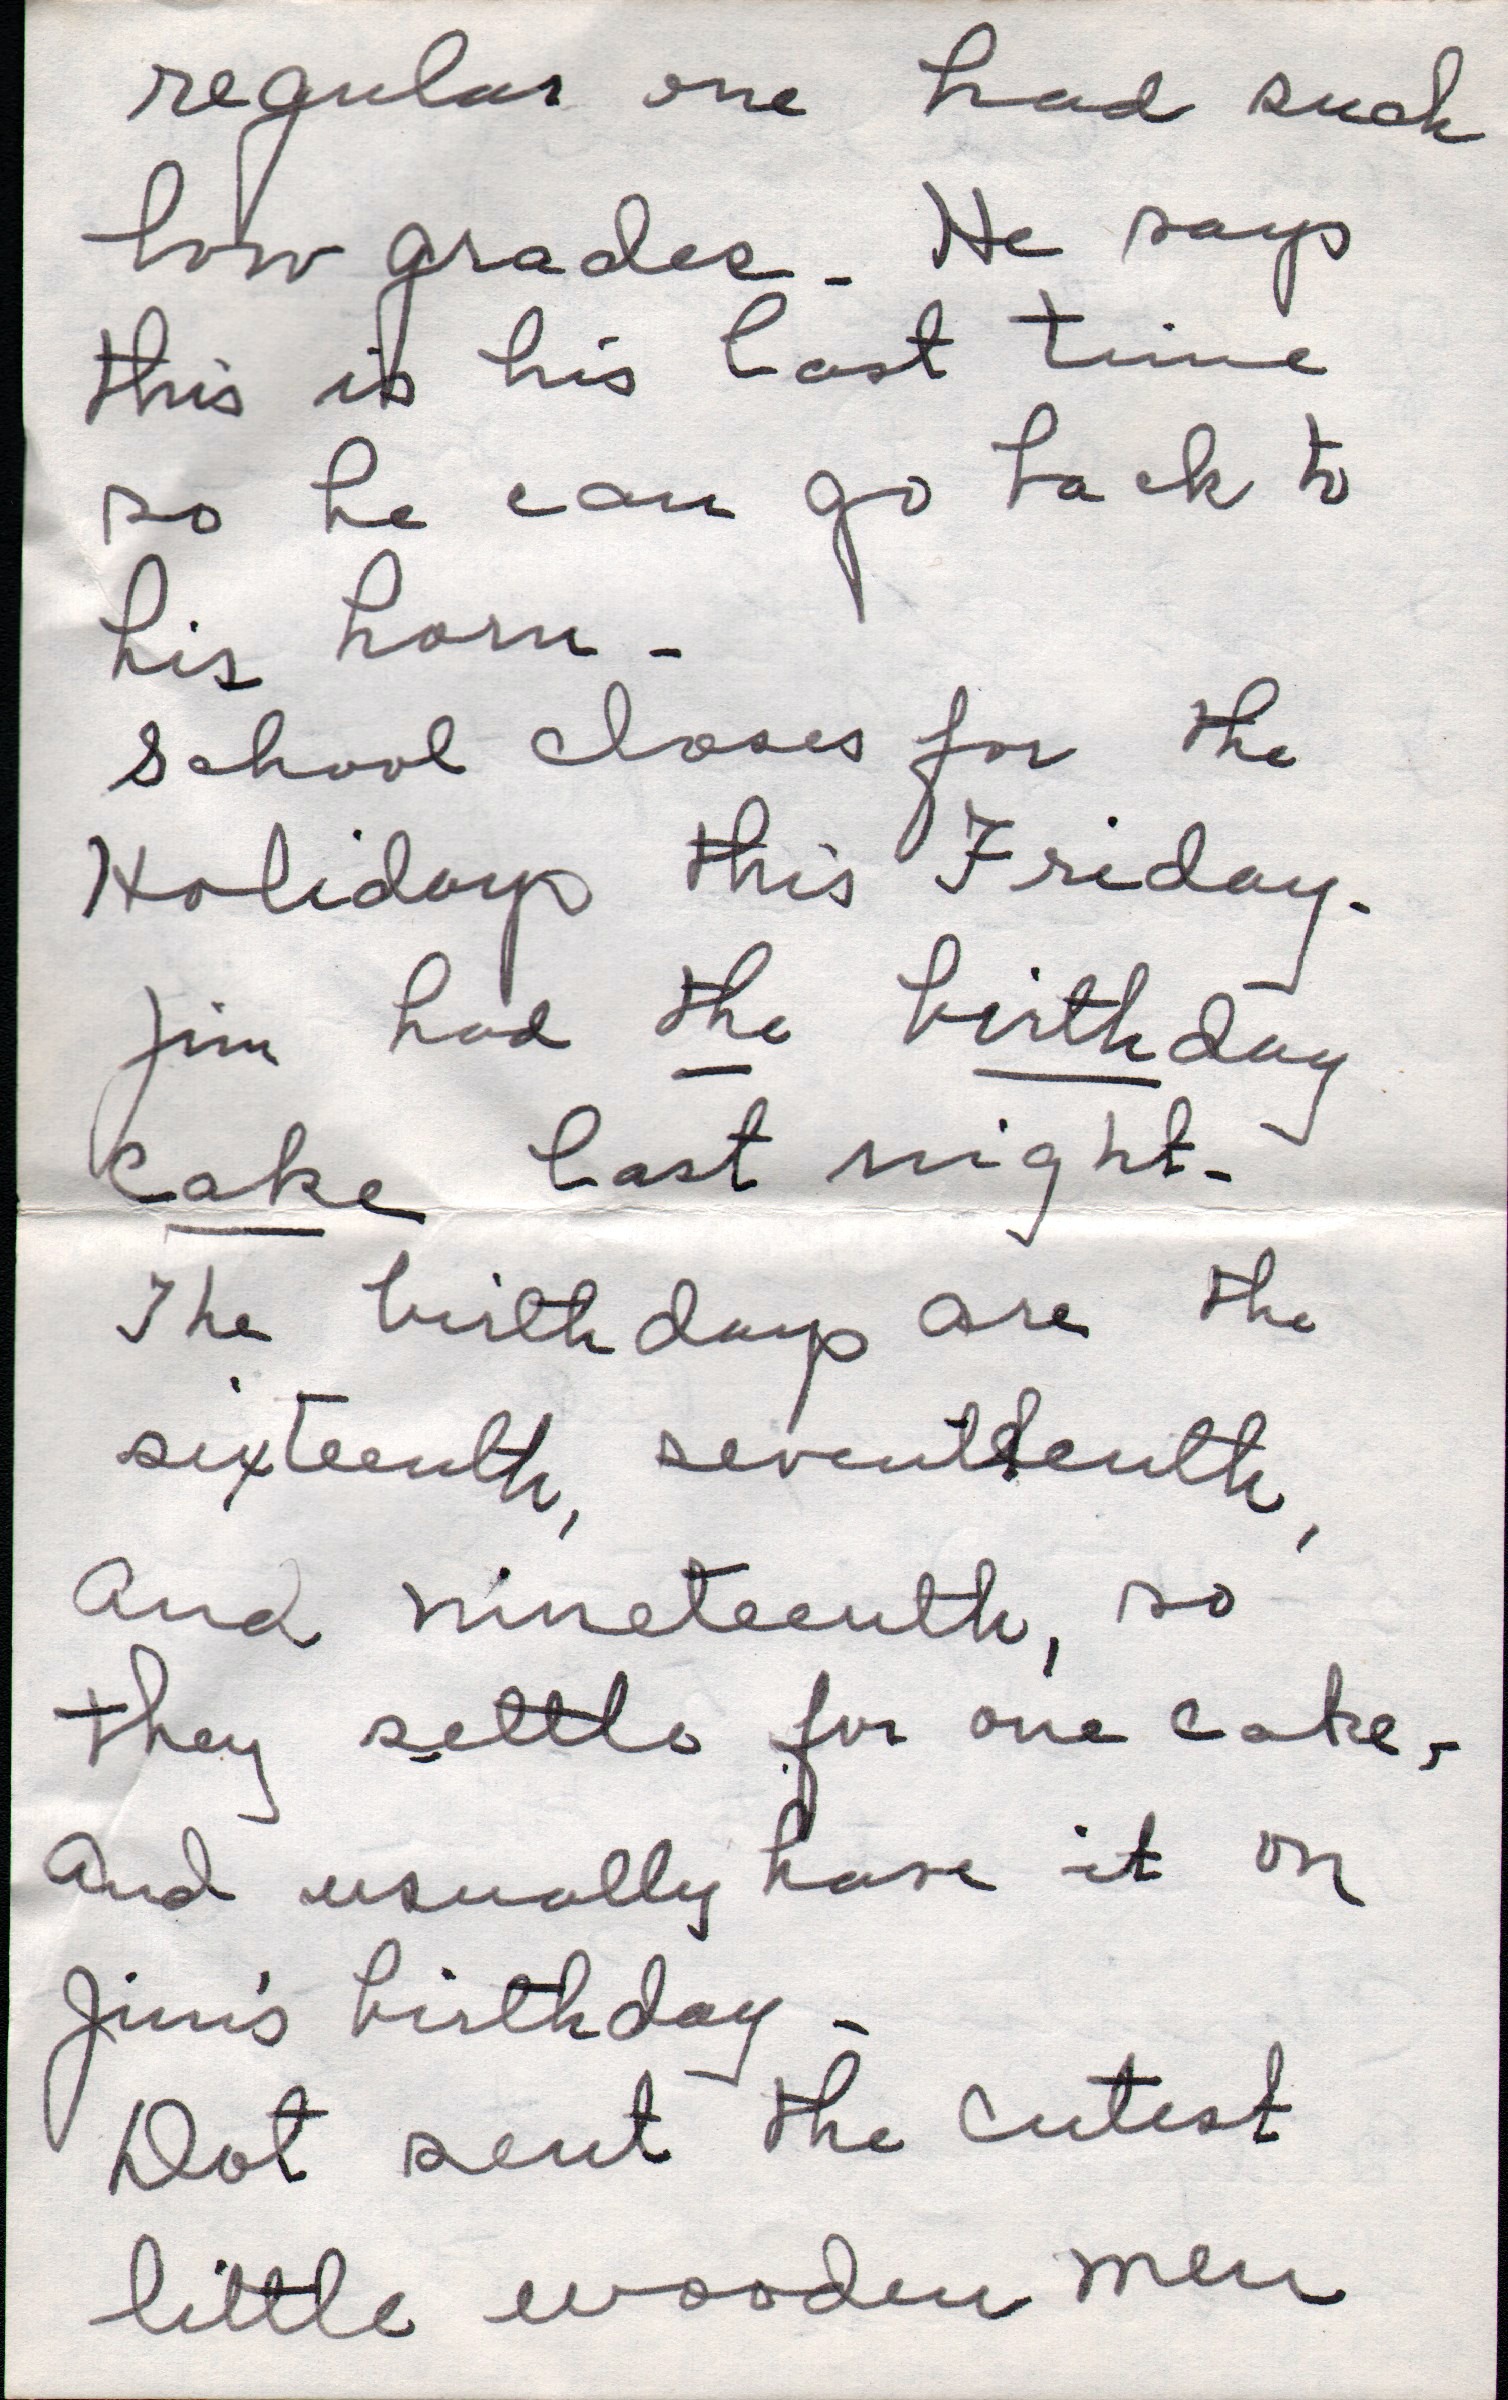 regular one had such
low grades - He says
this is his last time
so he can go back to
his horn -
School closes for the
Holidays this Friday -
Jim had the birthday
cake last night -
The birthdays are the
sixteenth, seventeenth,
and nineteenth, so
they settle for one cake, -
and usually have it on
Jim's birthday -
Dot sent the cutest
little wooden men